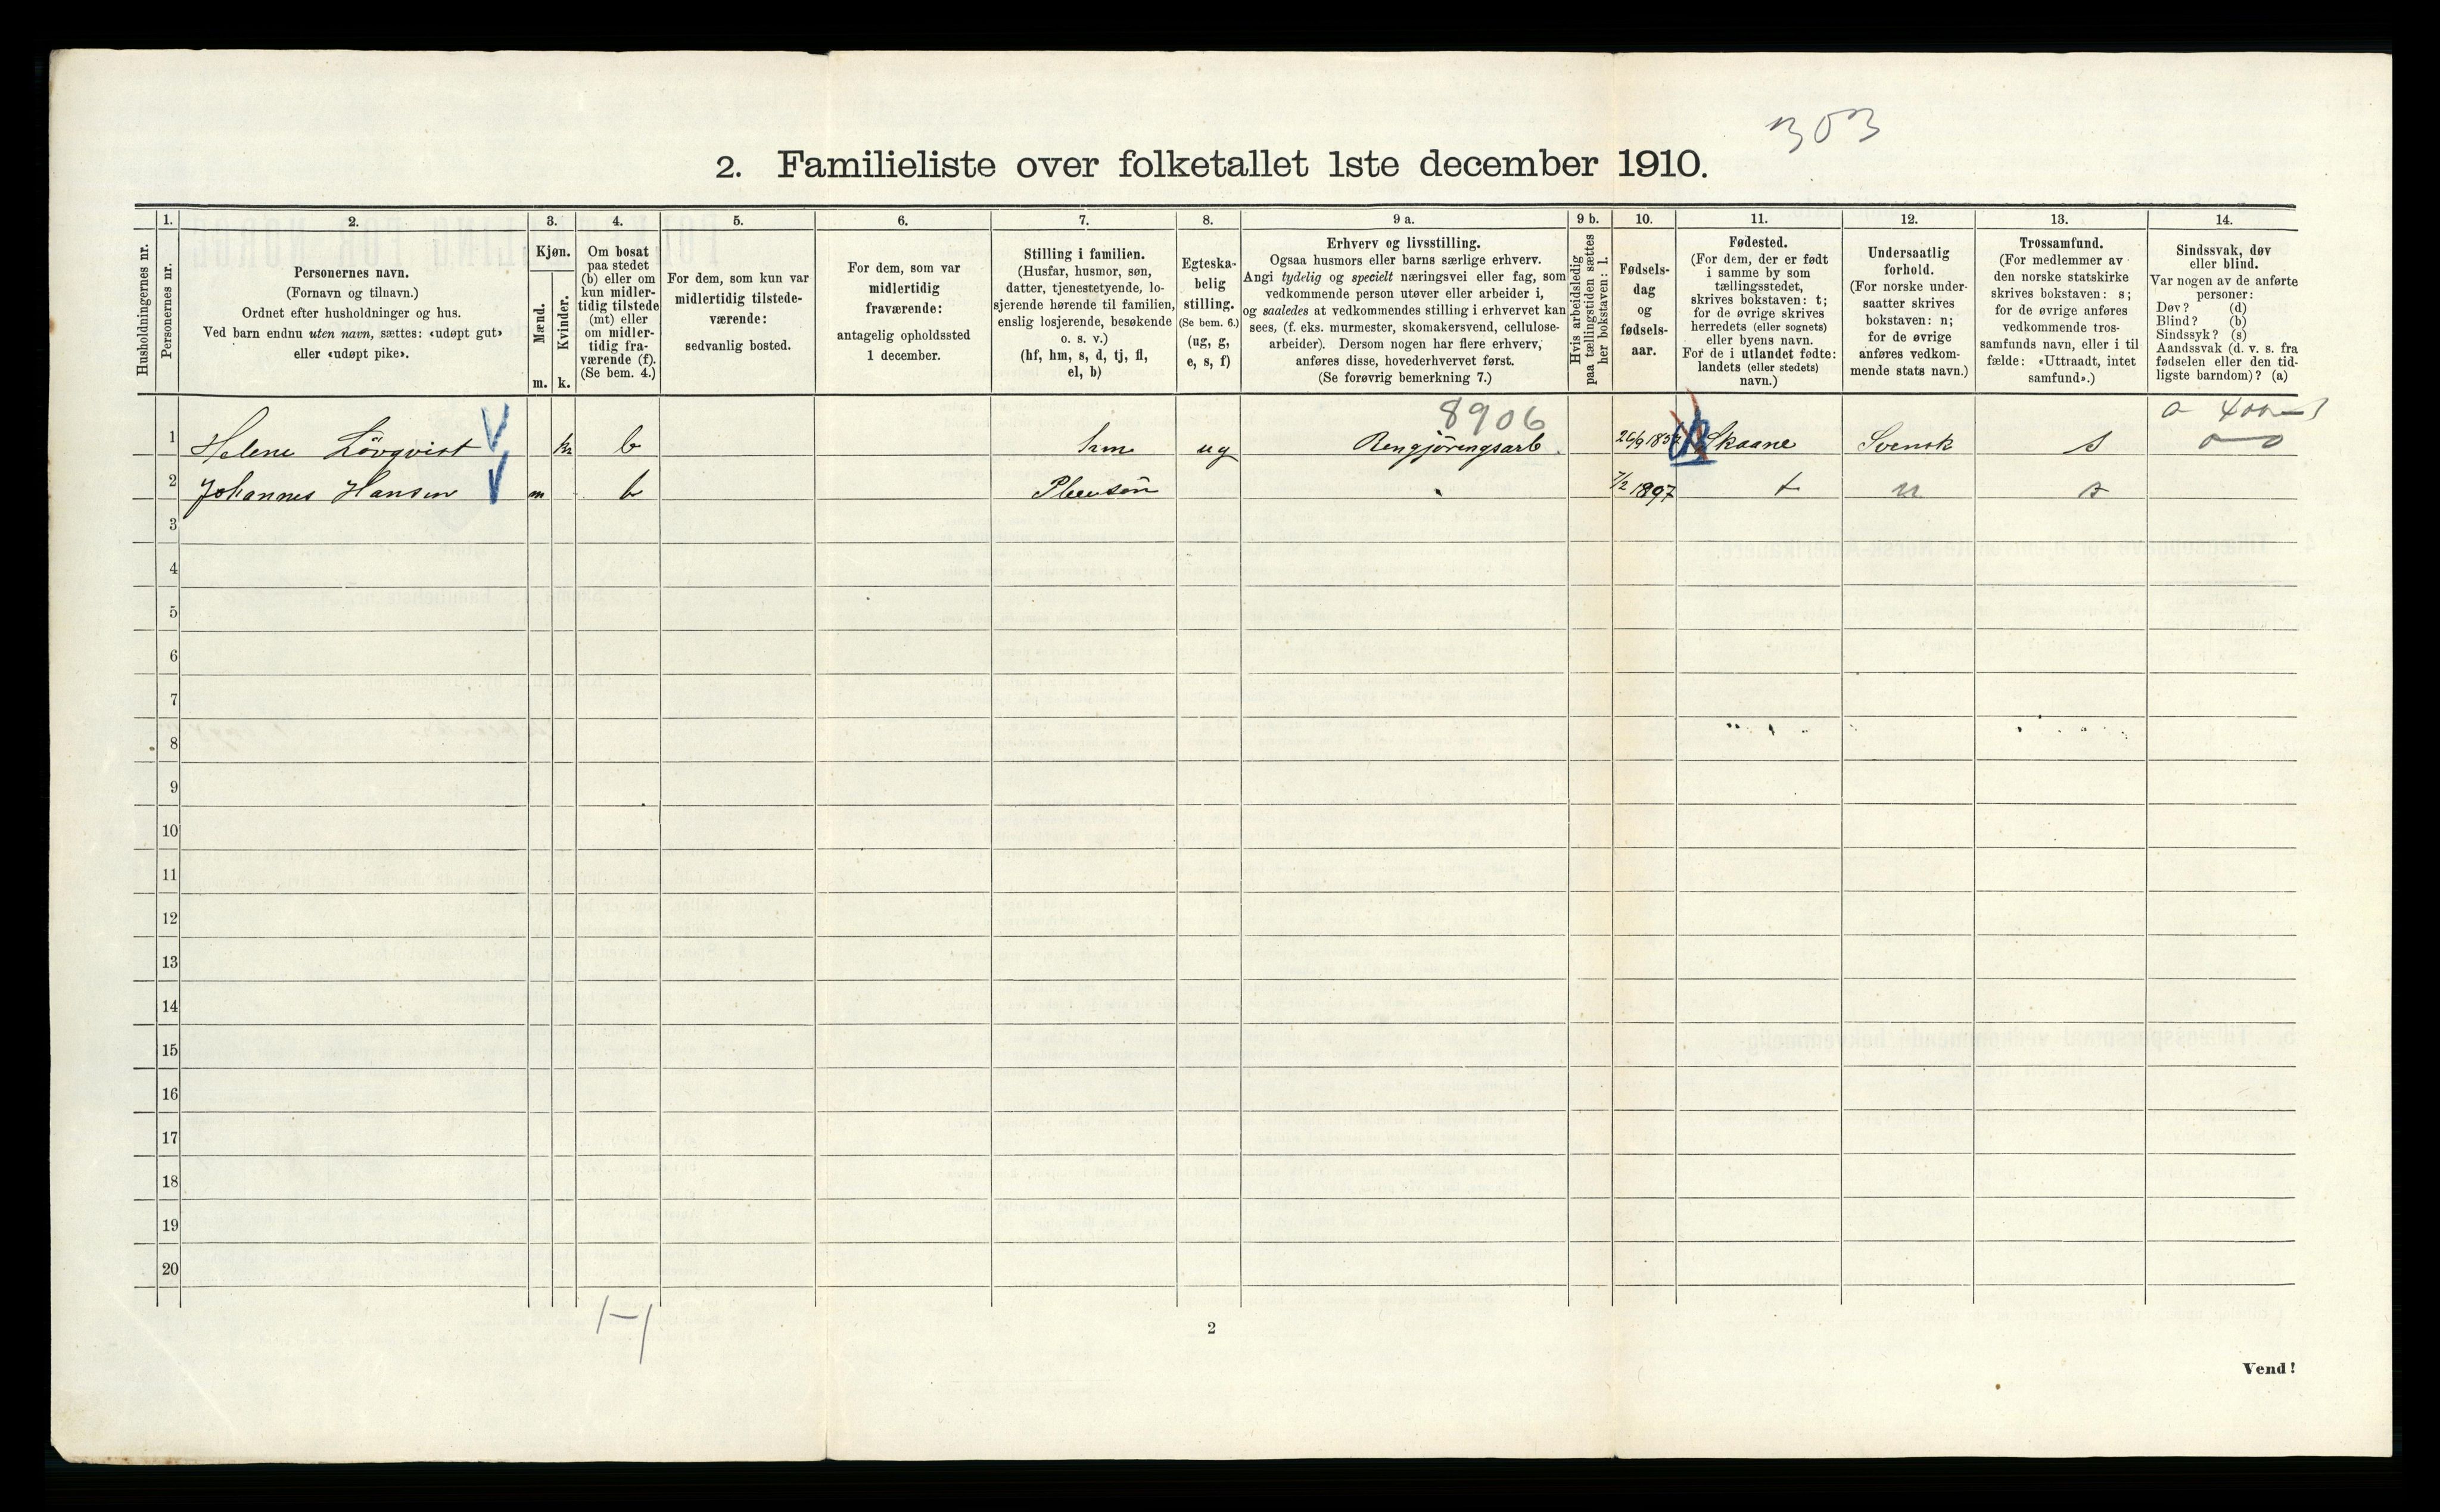 303
2. Familieliste over folketallet 1ste december 1910.
Husholdningernes nr.
1. Personernes nr.
2. Personernes navn.
(Fornavn og tilnavn.)
Ordnet efter husholdninger og hus.
Ved barn endnu uten navn, sættes: «udøpt gut»
eller «udøpt pike».
3. Kjøn.
Mænd. m.
Kvinder. k.
4. Om bosat
paa stedet
(b) eller om
kun midler-
tidig tilstede
(mt) eller
om midler-
tidig fra-
værende (f).
(Se bem. 4.)
5. For dem, som kun var
midlertidig tilstede-
værende:
sedvanlig bosted.
6. For dem, som var
midlertidig
fraværende:
antagelig opholdssted
1 december.
7. Stilling i familien.
(Husfar, husmor, søn,
datter, tjenestetyende, lo-
sjerende hørende til familien,
enslig losjerende, besøkende
o. s. v.)
(hf, hm, s, d, tj, fl,
el, b)
8. Egteska-
belig
stilling.
(Se bem. 6.)
(ug, g,
e, s, f)
9 a. Erhverv og livsstilling.
Ogsaa husmors eller barns særlige erhverv.
Angi tydelig og specielt næringsvei eller fag, som
vedkommende person utøver eller arbeider i,
og saaledes at vedkommendes stilling i erhvervet kan
sees, (f. eks. murmester, skomakersvend, cellulose-
arbeider). Dersom nogen har flere erhverv,
anføres disse, hovederhvervet først.
(Se forøvrig bemerkning 7.)
9 b. Hvis arbeidsledig
paa tællingstiden sættes
her bokstaven: l.
10. Fødsels-
dag
og
fødsels-
aar.
11. Fødested.
(For dem, der er født
i samme by som
tællingsstedet,
skrives bokstaven: t;
for de øvrige skrives
herredets (eller sognets)
eller byens navn.
For de i utlandet fødte:
landets (eller stedets)
navn.)
12. Undersaatlig
forhold.
(For norske under-
saatter skrives
bokstaven: n;
for de øvrige
anføres vedkom-
mende stats navn.)
13. Trossamfund.
(For medlemmer av
den norske statskirke
skrives bokstaven: s;
for de øvrige anføres
vedkommende tros-
samfunds navn, eller i til
fælde: «Uttraadt, intet
samfund».)
14. Sindssvak, døv
eller blind.
Var nogen av de anførte
personer:
Døv? (d)
Blind? (b)
Sindssyk? (s)
Aandssvak (d. v. s. fra
fødselen eller den tid-
ligste barndom)? (a)
8906
1 Helene Lövqvist k b hm ug Rengjöringsarb. Skaane Svensk s
2 Johannes Hansen m b Pleiesön 7/2 1897 t n s
3
4
5
6
7
8
9
10
11
12
13
14
15
16
17
18
19
20
1-1
2
Vend!